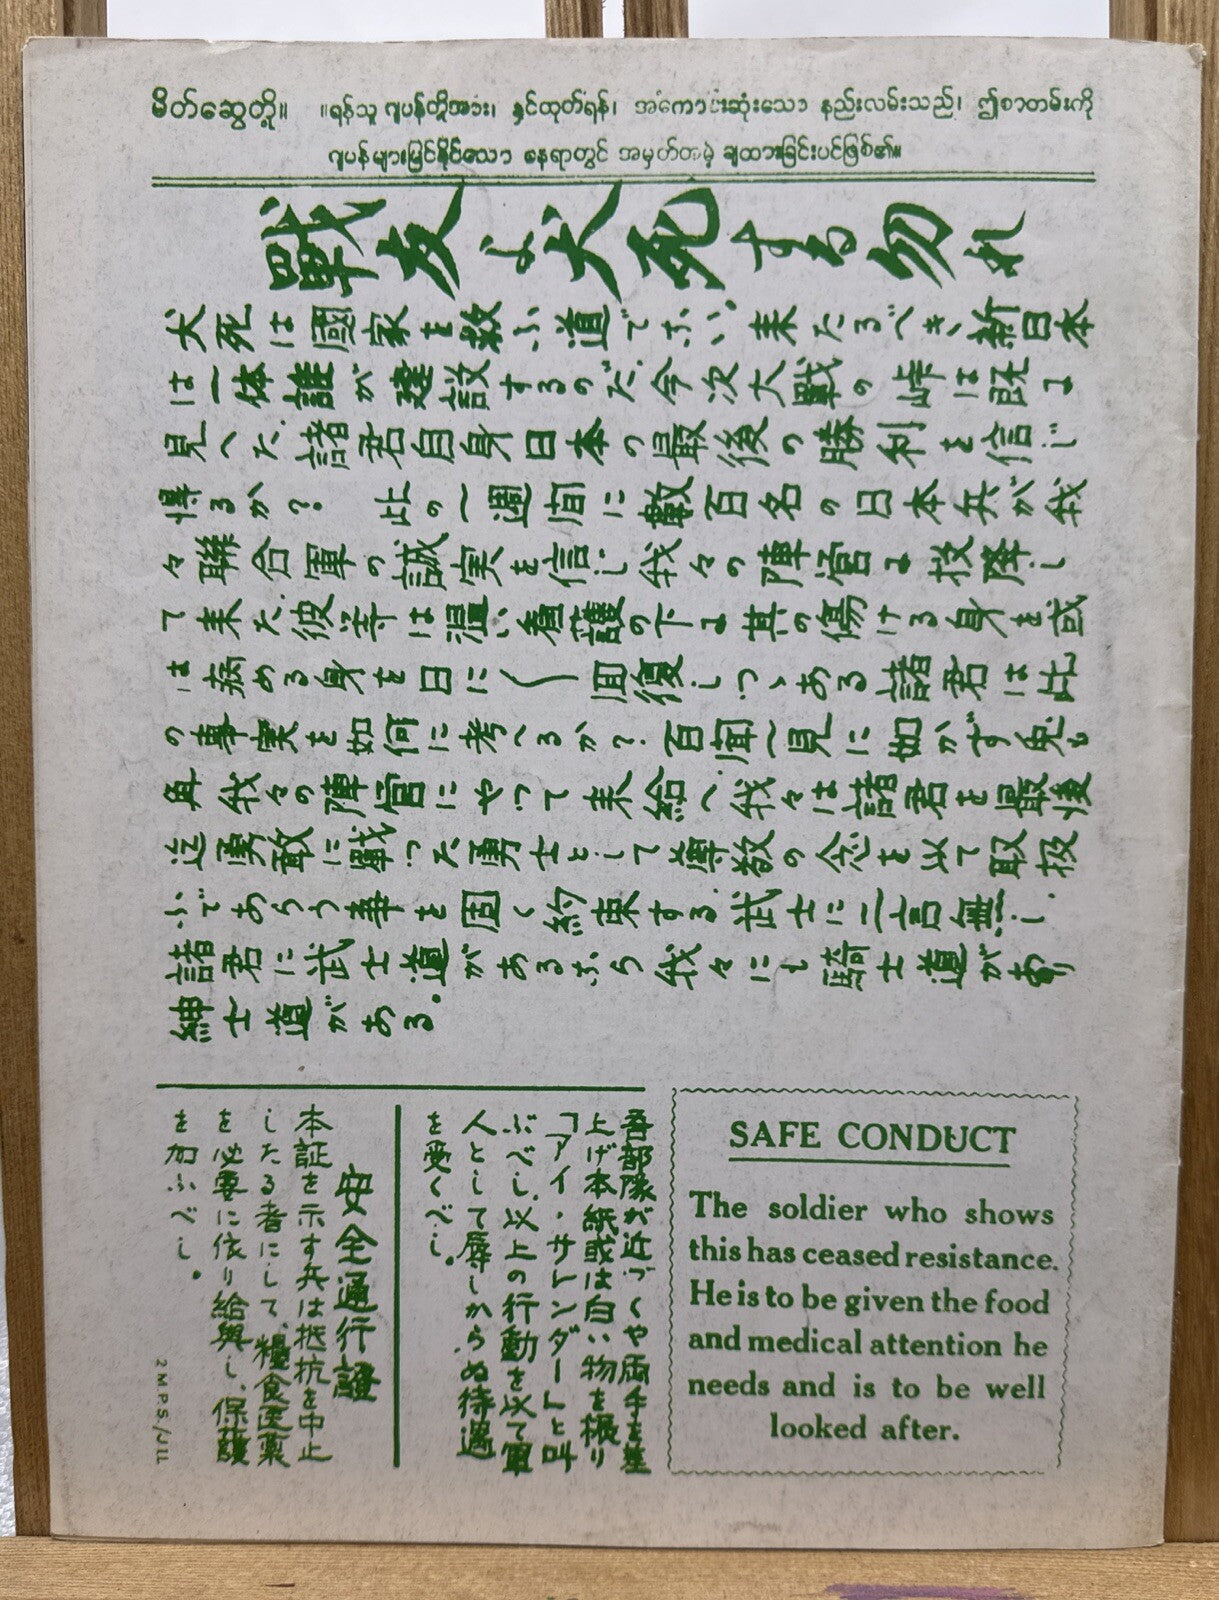 မိတ်ဆွေတို့။ ။ရန်သူ ဂျပန်တို့အား၊ နှင်ထုတ်ရန်၊ အကောင်းဆုံးသော နည်းလမ်းသည်၊ ဤစာတမ်းကို
ဂျပန်များမြင်နိုင်သော နေရာတွင် အမှတ်တမဲ့ ချထားခြင်းပင်ဖြစ်၏။
戰友よ犬死する勿れ
犬死は國家を救ふ道でない、来たるべき新日本
は一体誰が建設するのだ.今次大戰の峠は既に
見へた.諸君自身日本の最後の勝利を信じ
得るか? 此の一週間に數百名の日本兵が我
々聯合軍の誠実を信じ我々の陣営に投降し
て来た.彼等は温い看護の下に其の傷ける身を或
は病める身を日に〱回復しつゝある 諸君は此
の事実を如何に考へるか? 百聞一見に如かず兎も
角我々の陣営にやって来給へ.我々は諸君を最後
迄勇敢に戰った勇士として尊敬の念を以て取扱
ふであらう事を固く約束する.武士に二言無し.
諸君に武士道があるなら我々にも騎士道があり
紳士道がある。
吾部隊が近づくや両手を差
上げ本紙或は白い物を振り
「アイ・サレンダー」と叫
ぶべし、以上の行動を以て軍
人として辱しからぬ待遇
を受くべし。
安全通行證
本証を示す兵は抵抗を中止
したる者にして、糧食医薬
を必要に依り給與し、保護
を加ふべし。
2 M.P.S./J11
SAFE CONDUCT
The soldier who shows
this has ceased resistance.
He is to be given the food
and medical attention he
needs and is to be well
looked after.